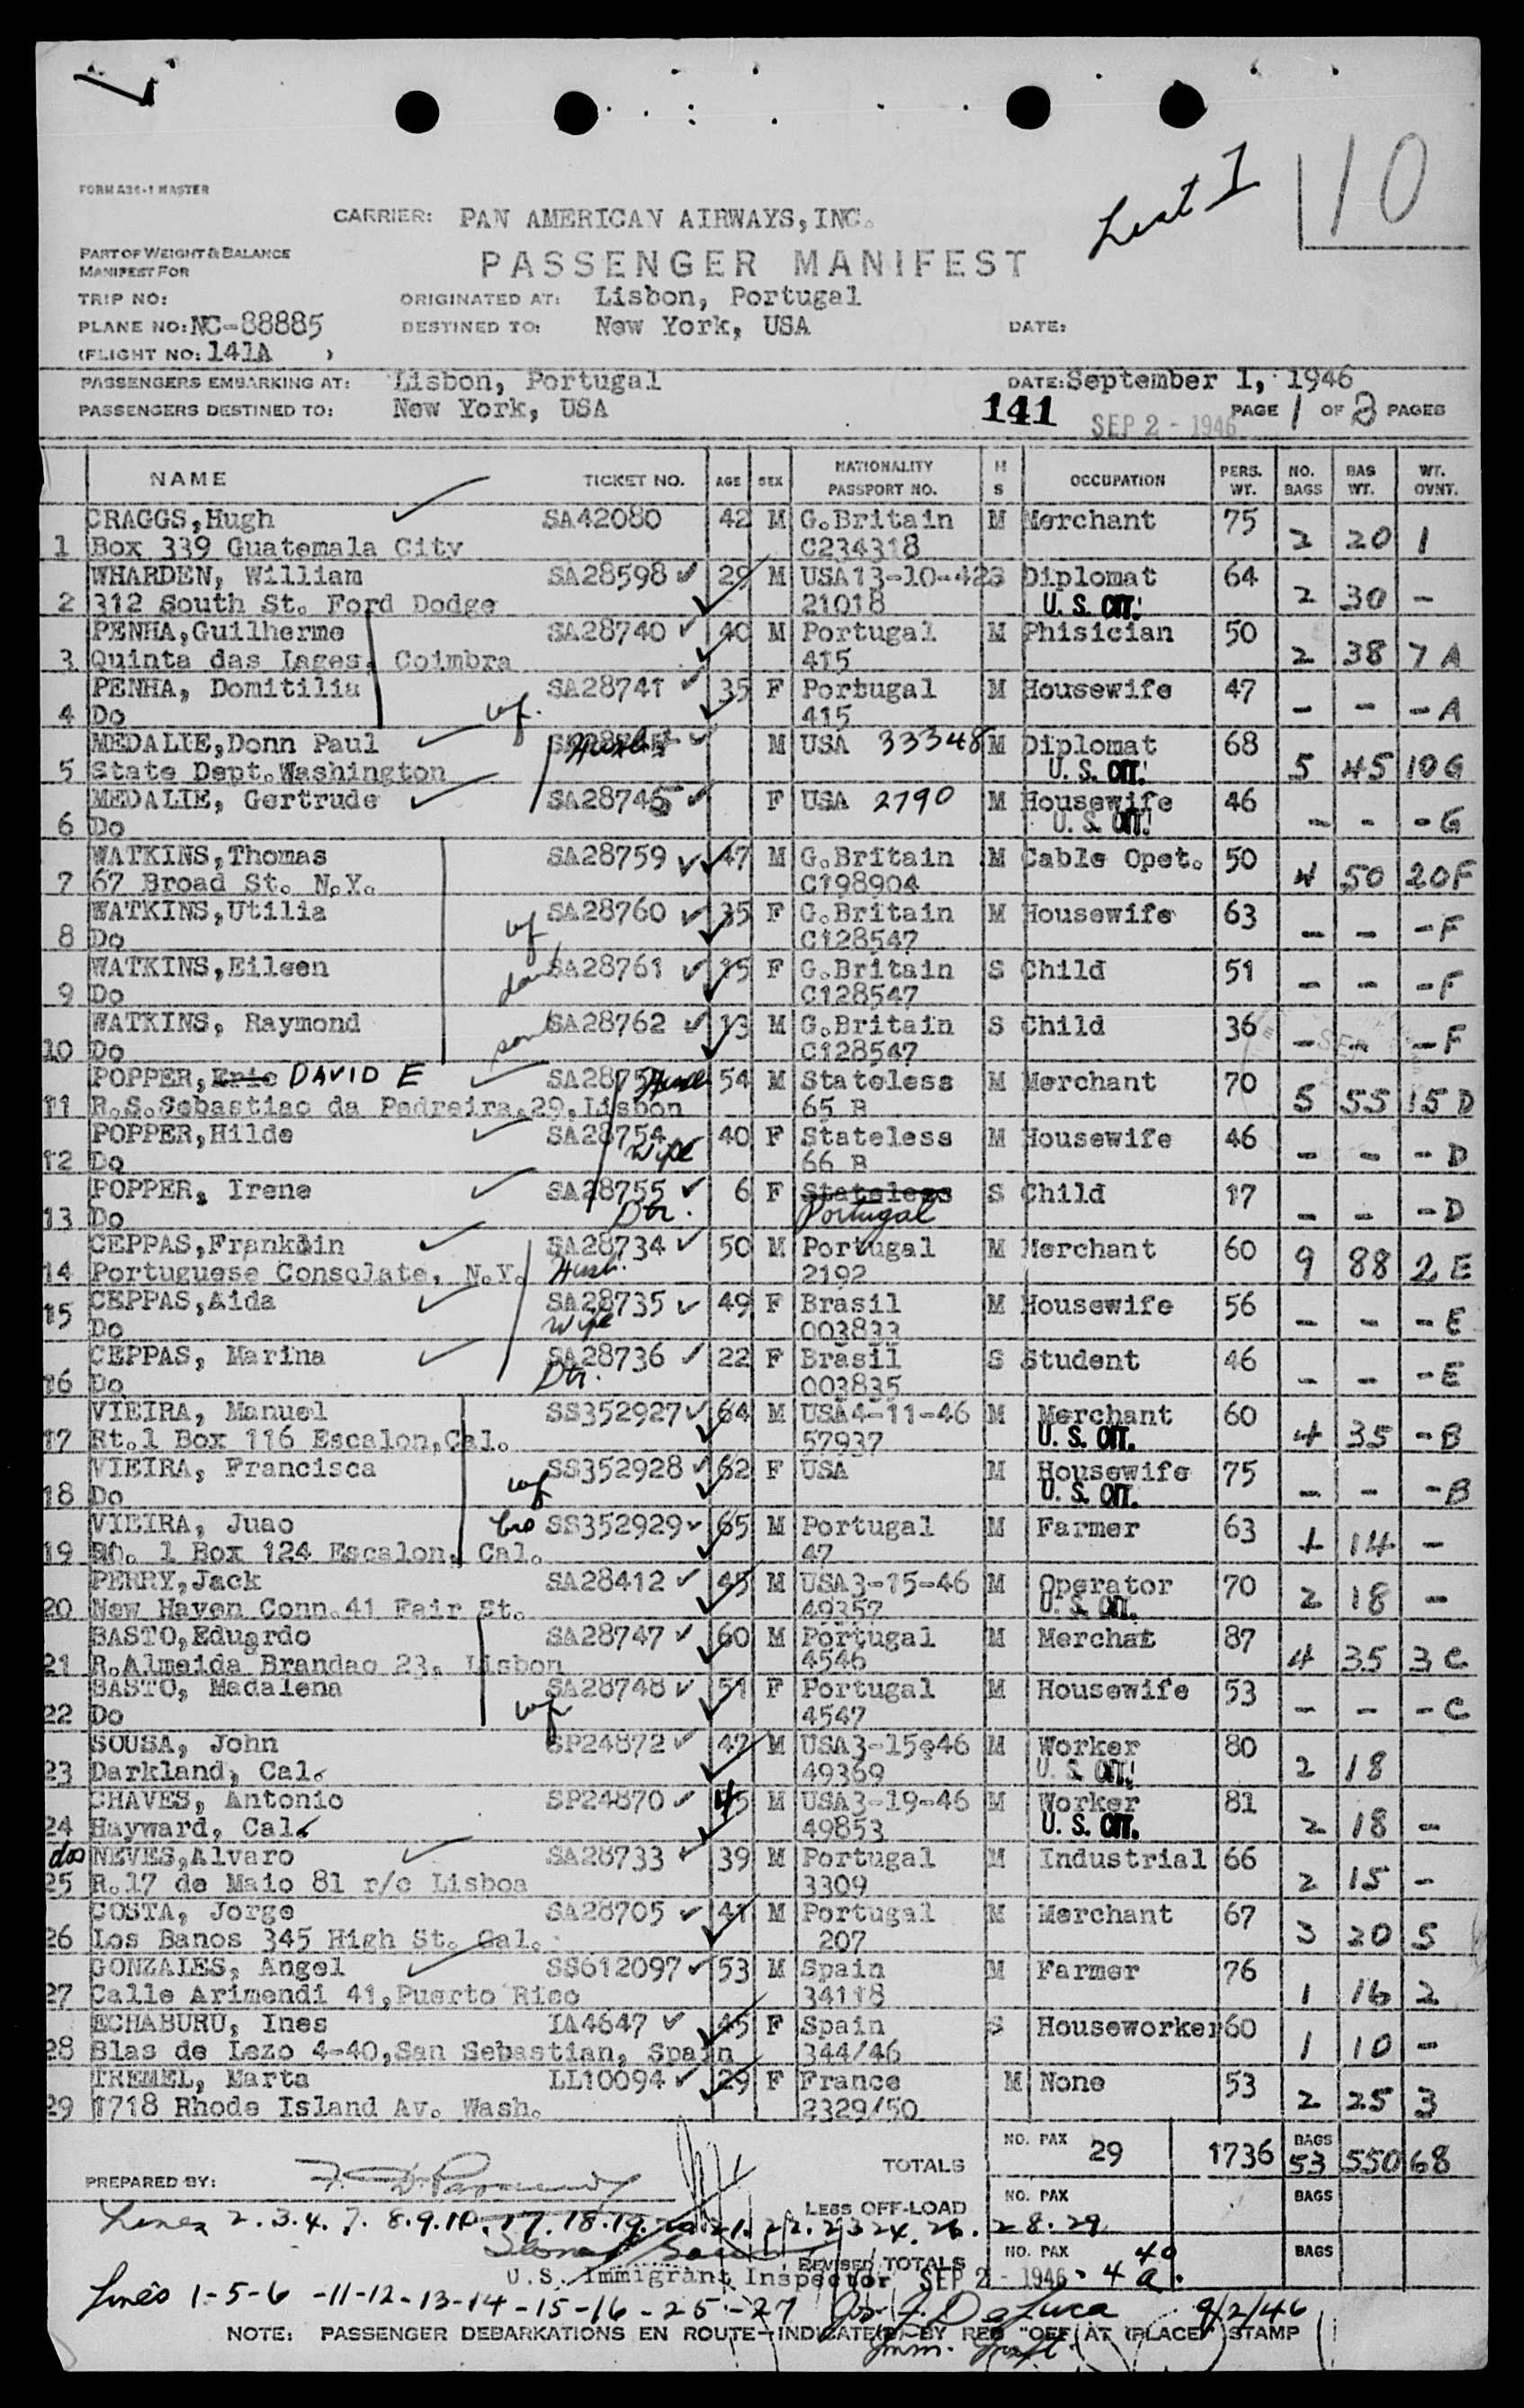 List 1
10
FORM A36-1 MASTER
CARRIER: PAN AMERICAN AIRWAYS, INC.
PART OF WEIGHT & BALANCE
MANIFEST FOR
PASSENGER MANIFEST
TRIP NO: ORIGINATED AT: Lisbon, Portugal
PLANE NO: NC-88885 DESTINED TO: New York, USA DATE:
(FLIGHT NO: 141A )
PASSENGERS EMBARKING AT: Lisbon, Portugal DATE: September 1, 1946
PASSENGERS DESTINED TO: New York, USA 141 SEP 2 - 1946 PAGE 1 OF 2 PAGES
NAME TICKET NO. AGE SEX NATIONALITY PASSPORT NO. M S OCCUPATION PERS. WT. NO. BAGS BAG WT. WT. OVNT.
CRAGGS,Hugh SA42080 42 M G.Britain M Merchant 75
1 Box 339 Guatemala City C234318 2 20 1
WHARDEN, William SA28598 29 M USA13-10-42 S Diplomat 64
2 312 South St. Ford Dodge 21018 U.S. CIT. 2 30 -
PENHA,Guilherme SA28740 40 M Portugal M Phisician 50
3 Quinta das Lages, Coimbra 415 2 38 7 A
PENHA, Domitilia SA28741 35 F Portugal M Housewife 47
4 Do wf. 415 - - - A
MEDALIE,Donn Paul Husb. M USA 33348 M Diplomat 68
5 State Dept.Washington U.S. CIT. 5 45 10 G
MEDALIE, Gertrude SA28746 F USA 2790 M Housewife 46
6 Do U.S. CIT. - - - G
WATKINS,Thomas SA28759 47 M G.Britain M Cable Opet. 50
7 67 Broad St. N.Y. C198904 4 50 20 F
WATKINS,Utilia wf SA28760 35 F G.Britain M Housewife 63
8 Do C128547 - - - F
WATKINS,Eileen dau SA28761 15 F G.Britain S Child 51
9 Do C128547 - - - F
WATKINS, Raymond son SA28762 13 M G.Britain S Child 36
10 Do C128547 - - - F
POPPER,Eric DAVID E Husb 54 M Stateless M Merchant 70
11 R.S.Sebastiao da Pedreira,29,Lisbon 65 B 5 55 15 D
POPPER,Hilde SA28754 40 F Stateless M Housewife 46
12 Do Wife 66 B - - - D
POPPER, Irene SA28755 6 F Stateless S Child 17
13 Do Dtr. Portugal - - - D
CEPPAS,Franklin SA28734 50 M Portugal M Merchant 60
14 Portuguese Consolate, N.Y. Husb. 2192 9 88 2 E
CEPPAS,Aida SA28735 49 F Brasil M Housewife 56
15 Do Wife 003833 - - - E
CEPPAS, Marina SA28736 22 F Brasil S Student 46
16 Do Dtr. 003835 - - - E
VIEIRA, Manuel SS352927 64 M USA4-11-46 M Merchant 60
17 Rt.1 Box 116 Escalon,Cal. 57937 U.S. CIT. 4 35 - B
VIEIRA, Francisca SS352928 62 F USA M Housewife 75
18 Do wf U.S. CIT. - - - B
VIEIRA, Juao bro SS352929 65 M Portugal M Farmer 63
19 Rt. 1 Box 124 Escalon, Cal. 47 1 14 -
PERRY,Jack SA28412 45 M USA3-15-46 M Operator 70
20 New Haven Conn.41 Fair St. 49357 U.S. CIT. 2 18 -
BASTO,Eduardo SA28747 60 M Portugal M Merchat 87
21 R.Almeida Brandao 23, Lisbon 4546 4 35 3 C
BASTO, Madalena SA28748 51 F Portugal M Housewife 53
22 Do wf 4547 - - - C
SOUSA, John SP24872 47 M USA3-15-46 M Worker 80
23 Darkland, Cal. 49369 U.S. CIT. 2 18
CHAVES, Antonio SP24870 45 M USA3-19-46 M Worker 81
24 Hayward, Cal. 49853 U.S. CIT. 2 18 -
dos NEVES,Alvaro SA28733 39 M Portugal M Industrial 66
25 R.17 de Maio 81 r/c Lisboa 3309 2 15 -
COSTA, Jorge SA28705 41 M Portugal M Merchant 67
26 Los Banos 345 High St. Cal. 207 3 20 5
GONZALES, Angel SS612097 53 M Spain M Farmer 76
27 Calle Arimendi 41,Puerto Rico 34118 1 16 2
ECHABURU, Ines IA4647 45 F Spain S Houseworker 60
28 Blas de Lezo 4-40,San Sebastian, Spain 344/46 1 10 -
TREMEL, Marta LL10094 29 F France M None 53
29 1718 Rhode Island Av. Wash. 2329/50 2 25 3
TOTALS NO. PAX 29 1736 BAGS 53 550 68
PREPARED BY:
LESS OFF-LOAD NO. PAX BAGS
Lines 2.3.4.7.8.9.10.17.18.19.20.21.22.23 24.26. 28.29
REVISED TOTALS NO. PAX BAGS
U.S. Immigrant Inspector SEP 2 - 1946
Lines 1-5-6-11-12-13-14-15-16-25-27 Jos. J. DeLuca 9/2/46
NOTE: PASSENGER DEBARKATIONS EN ROUTE-INDICATED BY RED "OFF AT (PLACE)" STAMP
Imm. Insp.